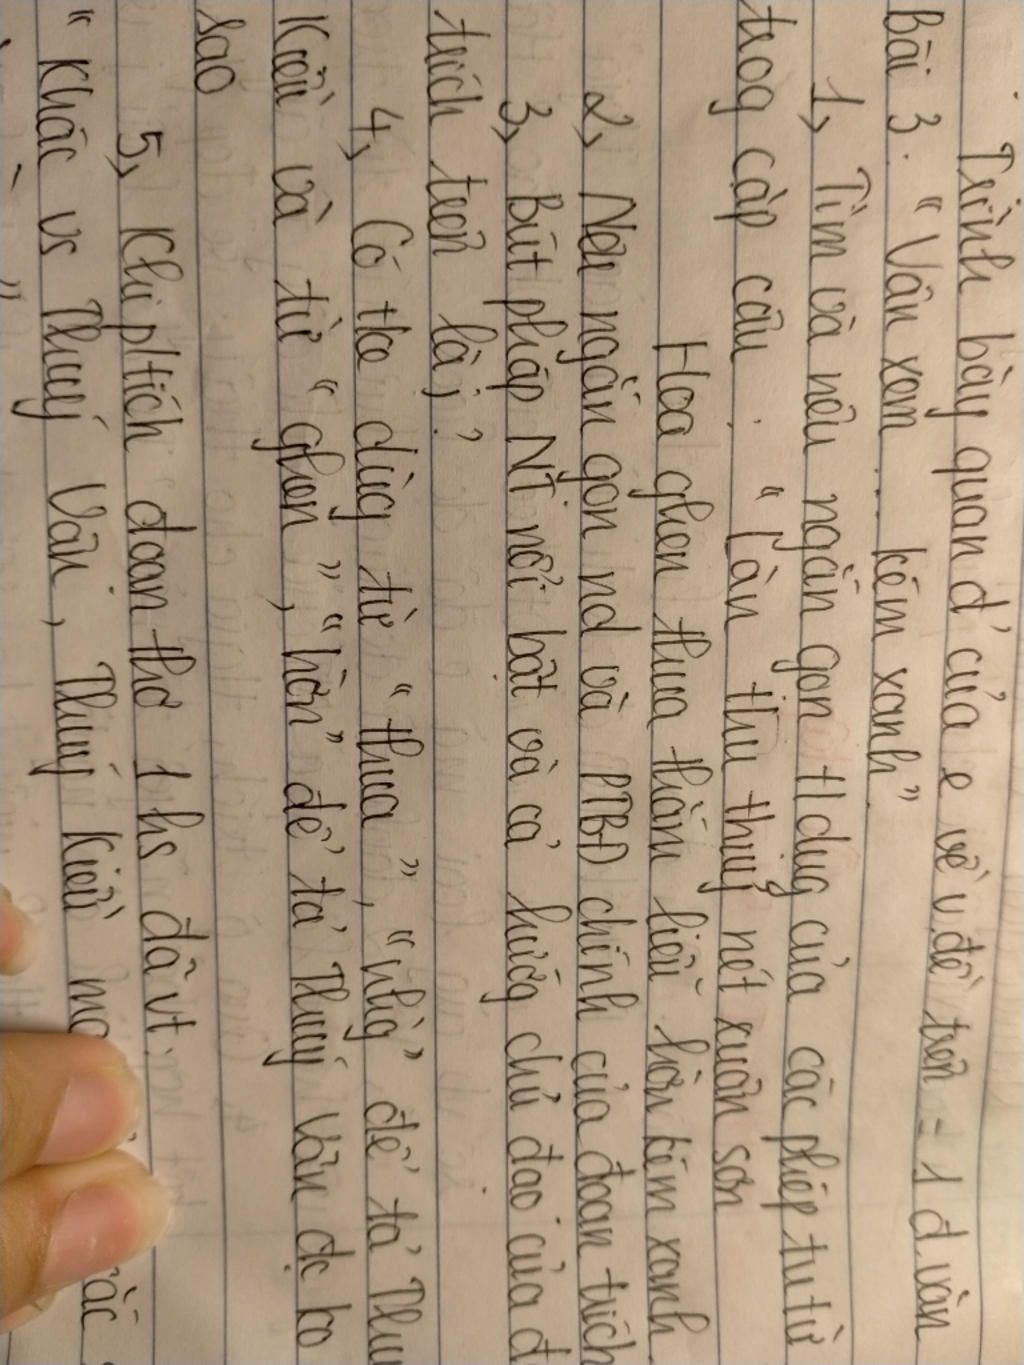 Trình bày quan đ' của e về v.đề trên = 1 đ.văn
Bài 3. "Vân xem ... kém xanh"
1, Tìm và nêu ngắn gọn t/dụg của các phép tu từ
trog cặp câu. "Làn thu thuỷ nét xuân sơn
Hoa ghen thua thắm liễu hờn kém xanh
2, Nêu ngắn gọn nd và PTBĐ chính của đoạn trích
3, Bút pháp NT nổi bật và cả hướg chủ đạo của đ
trích trên là j?
4, Có thể dùg từ "thua", "nhg" để tả
Kiều và từ "ghen", "hờn" để tả Thuý Vân đc ko
sao
5, Khi p/tích đoạn thơ 1 hs đã vt:
"Khác vs Thuý Vân, Thuý Kiều